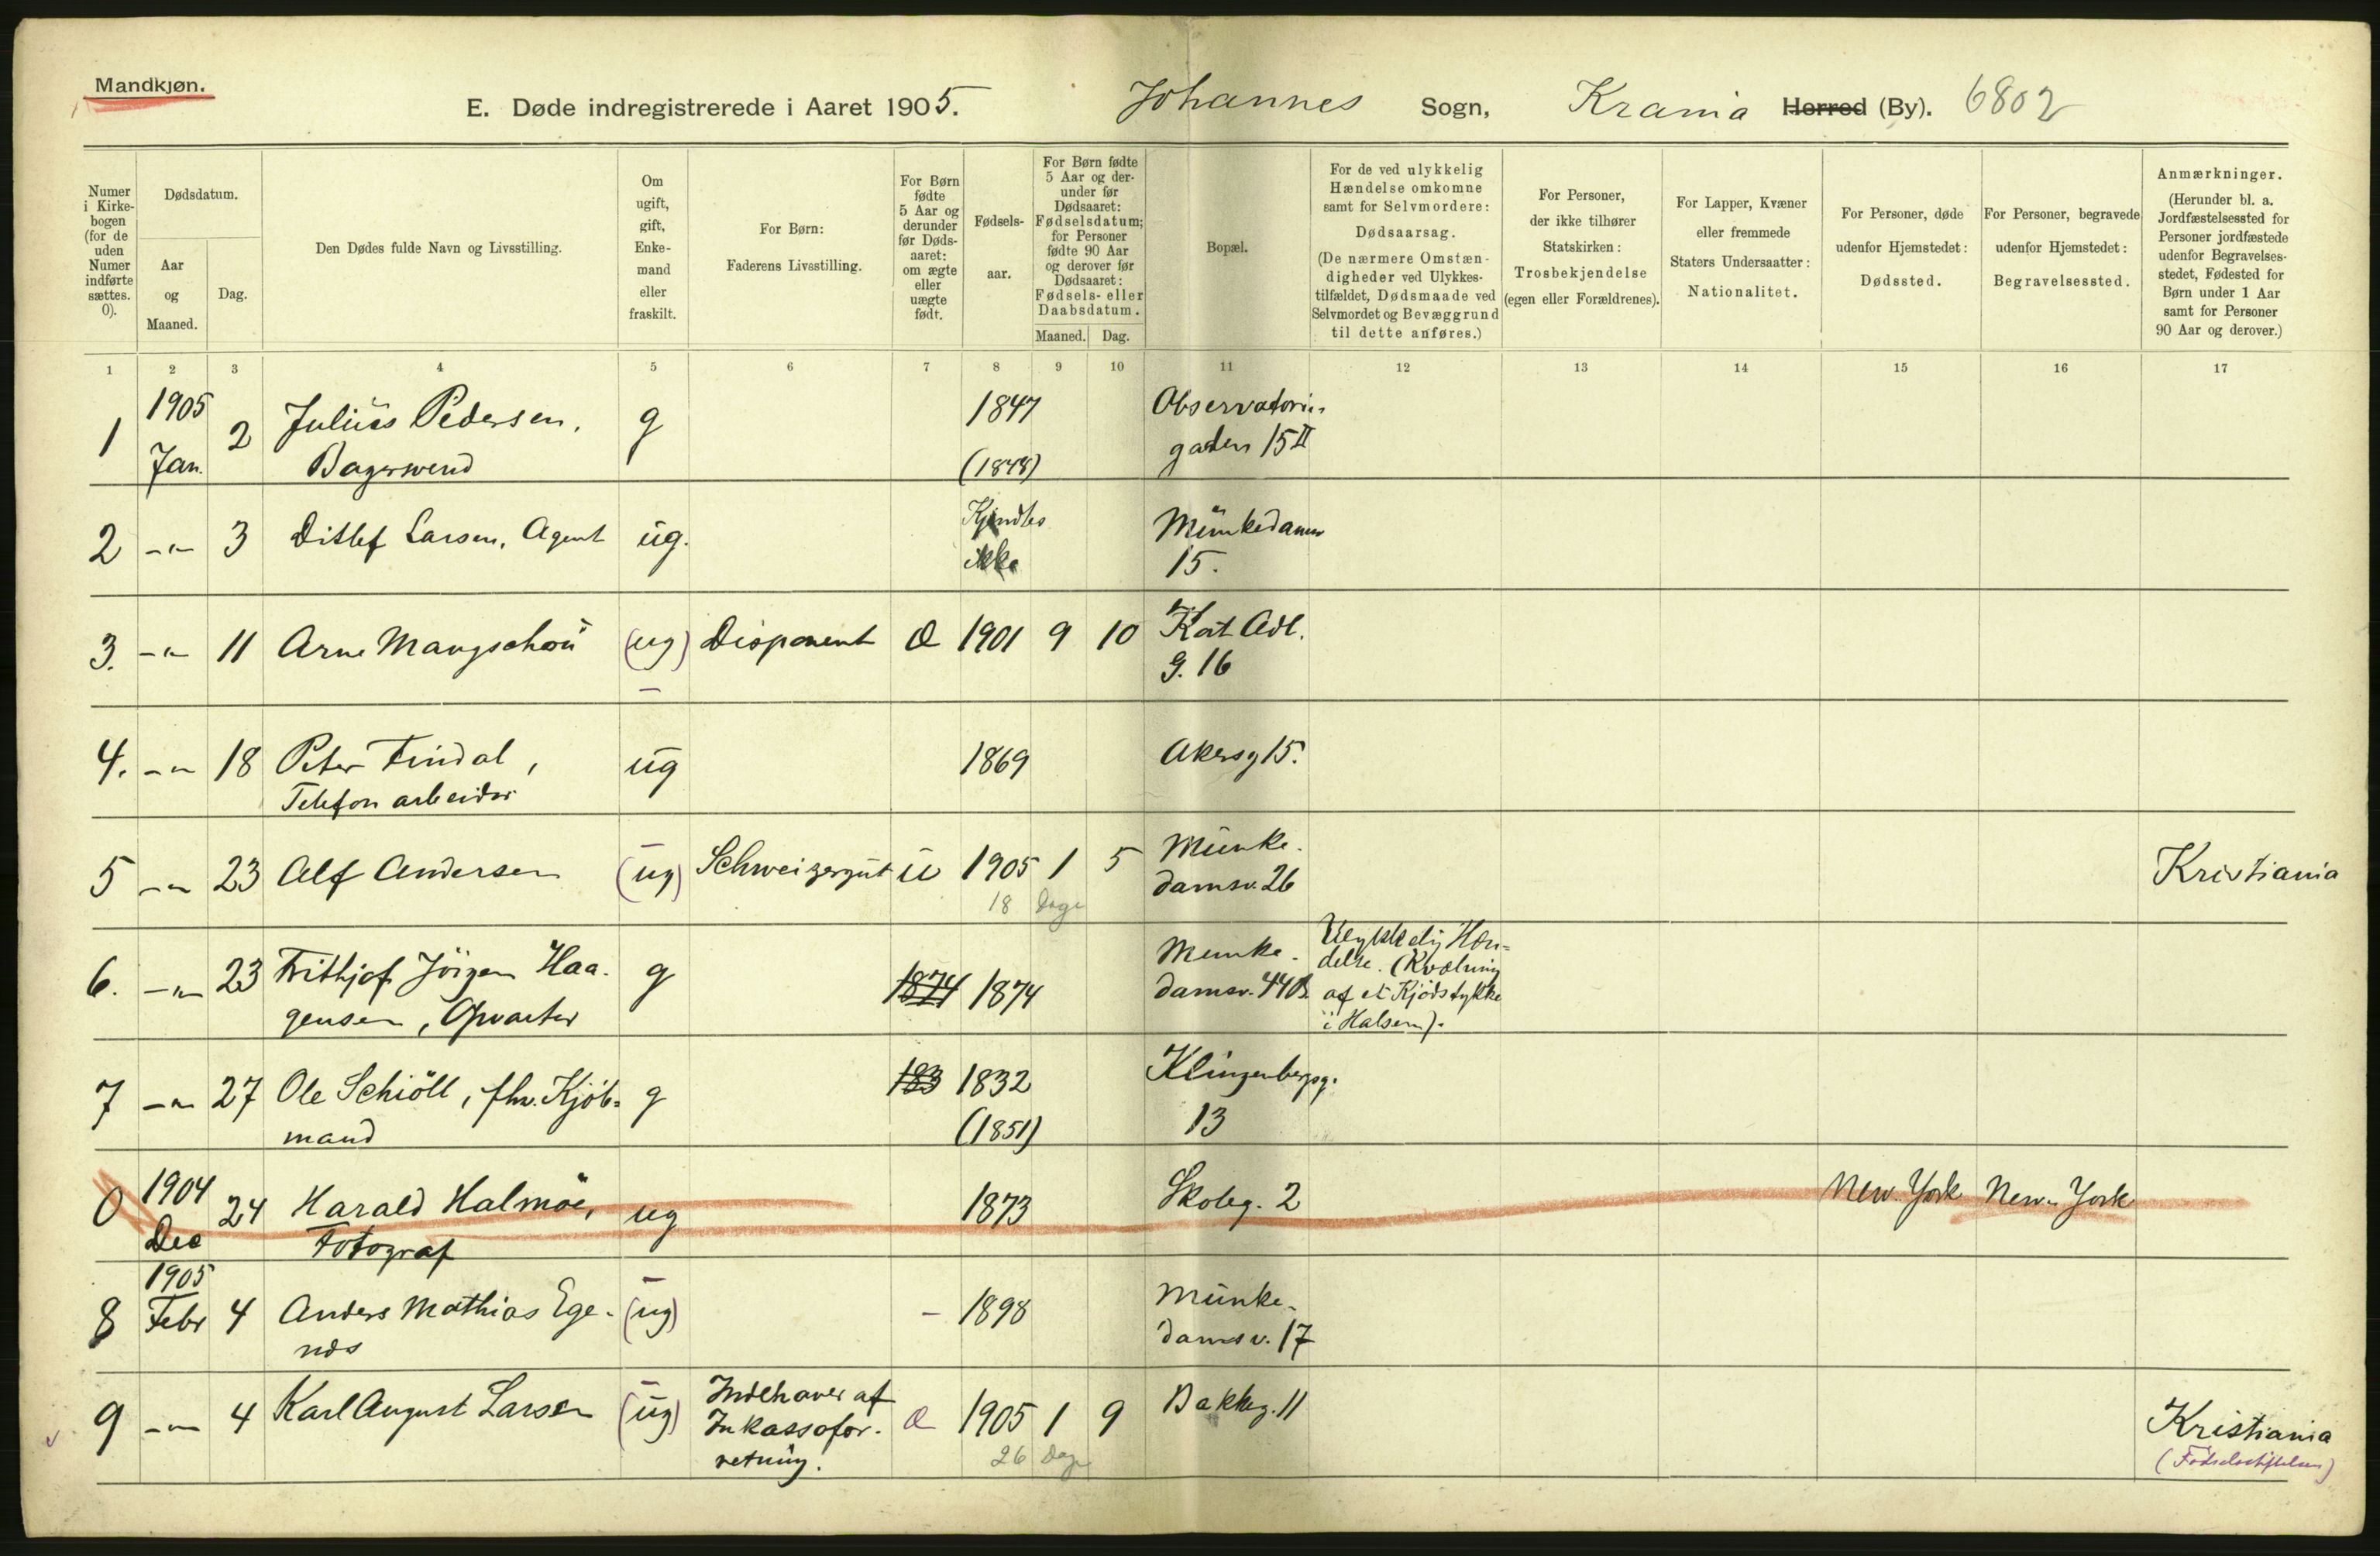 Mandkjøn.
E. Døde indregistrerede i Aaret 1905. Johannes Sogn, Krania Herred (By). 6802
Numer i Kirke-bogen (for de uden Numer indførte sættes. 0).
Dødsdatum.
Aar og Maaned.
Dag.
Den Dødes fulde Navn og Livsstilling.
Om ugift, gift, Enke-mand eller fraskilt.
For Børn: Faderens Livsstilling.
For Børn fødte 5 Aar og derunder før Døds-aaret: om ægte eller uægte født.
Fødsels-aar.
For Børn fødte 5 Aar og der-under før Dødsaaret: Fødselsdatum; for Personer fødte 90 Aar og derover før Dødsaaret: Fødsels- eller Daabsdatum.
Maaned. Dag.
Bopæl.
For de ved ulykkelig Hændelse omkomne samt for Selvmordere: Dødsaarsag. (De nærmere Omstæn-digheder ved Ulykkes-tilfældet, Dødsmaade ved Selvmordet og Bevæggrund til dette anføres.)
For Personer, der ikke tilhører Statskirken: Trosbekjendelse (egen eller Forældrenes).
For Lapper, Kvæner eller fremmede Staters Undersaatter: Nationalitet.
For Personer, døde udenfor Hjemstedet: Dødssted.
For Personer, begravede udenfor Hjemstedet: Begravelsessted.
Anmærkninger. (Herunder bl. a. Jordfæstelsessted for Personer jordfæstede udenfor Begravelses-stedet, Fødested for Børn under 1 Aar samt for Personer 90 Aar og derover.)
1 2 3 4 5 6 7 8 9 10 11 12 13 14 15 16 17
1 1905 Jan. 2 Julius Pedersen, g 1847 Observatorie-
Bagersvend (1848) gaden 15 II
2 -"- 3 Ditlef Larsen, Agent ug. Kjendtes Munkedamsv
ikke 15.
3. -"- 11 Arne Mangschou (ug) Disponent Æ 1901 9 10 Kat Adl.
g. 16
4. -"- 18 Peter Findal, ug 1869 Akersg 15.
Telefonarbeider
5 -"- 23 Alf Andersen (ug) Schweizergut U 1905 1 5 Munke- Kristiania
18 Dage damsv. 26
6. -"- 23 Frithjof Jörgen Haa- g 1874 1874 Munke- Ulykkelig Hæn-
gensen, Opvarter damsv. 44B. delse. (Kvælning
af et Kjödstykke
i Halsen).
7 -"- 27 Ole Schiöll, fhv. Kjöb- g 183 1832 Klingenbergg.
mand (1851) 13
0 1904 Dec 24 Harald Halmöe, ug 1873 Skoleg. 2 New-York New-York
Fotograf
8 1905 Febr 4 Anders Mathias Ege- (ug) - 1898 Munke-
nds damsv. 17
9 -"- 4 Karl August Larsen (ug) Indehaver af Æ 1905 1 9 Bakkeg. 11 Kristiania
Inkassofor- 26 Dage (Fødselsstiftelsen)
retning.